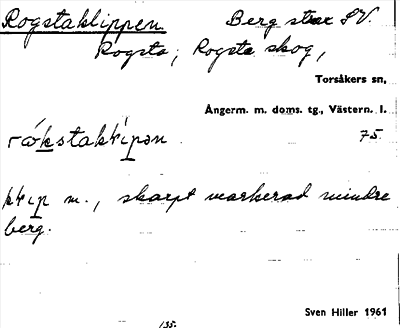 Rogstaklippen Berg strax SV.
Rogsta, Rogsta skog,
Torsåkers sn,
Ångerm. m. doms. tg., Västern. l.
75.
m., skarpt markerad mindre
berg.
Sven Hiller 1961
135.